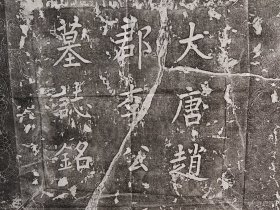 大唐趙
郡李公
墓誌銘